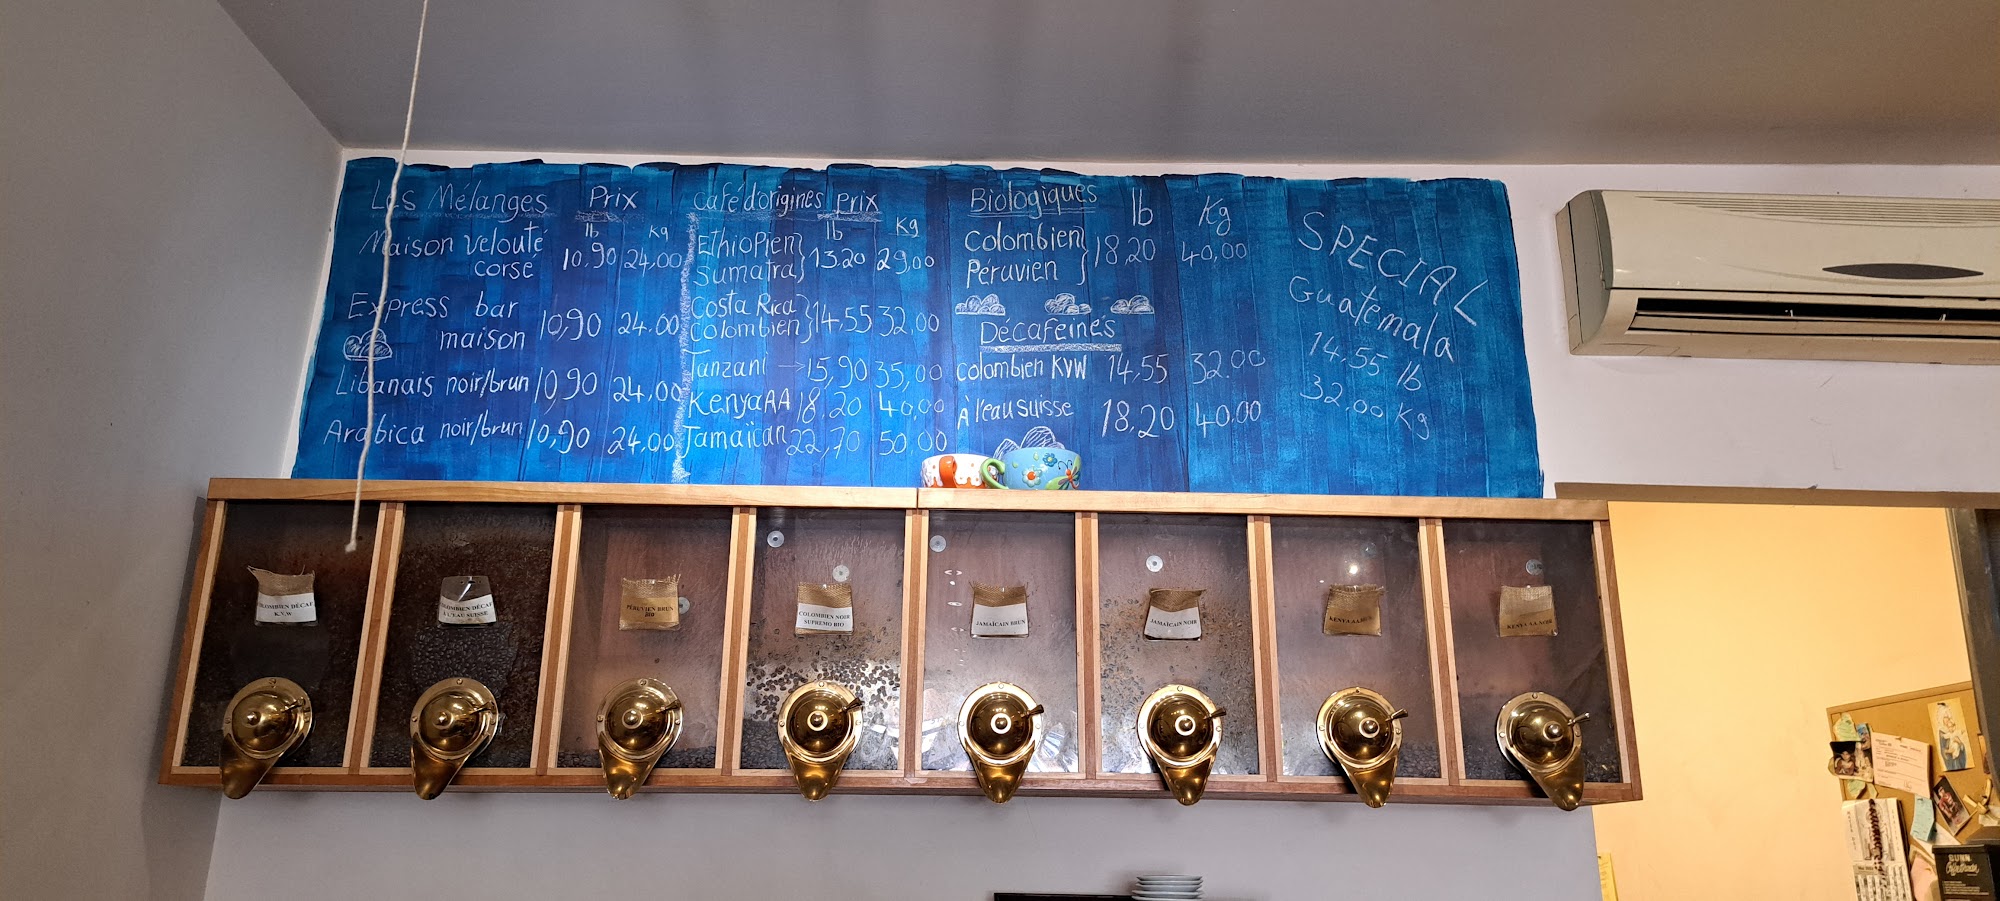 Les Mélanges Prix
lb Kg
Maison velouté
corsé 10,90 24,00
Express bar
maison 10,90 24.00
Libanais noir/brun 10,90 24,00
Arabica noir/brun 10,90 24,00
Café d'origines prix
lb Kg
Ethiopien
Sumatra 13.20 29,00
Costa Rica
Colombien 14,55 32,00
Tanzani → 15,90 35,00
Kenya AA 18.20 40,00
Jamaïcan 22,70 50,00
Biologiques lb Kg
Colombien
Péruvien 18,20 40,00
Décafeinés
Colombien KVW 14,55 32.00
À l'eau suisse 18,20 40.00
SPECIAL
Guatemala
14,55 lb
32,00 Kg
COLOMBIEN DÉCAF
K.V.W
COLOMBIEN DÉCAF
À L'EAU SUISSE
PÉRUVIEN BRUN
BIO
COLOMBIEN NOIR
SUPREMO BIO
JAMAÏCAIN BRUN
JAMAÏCAIN NOIR
KENYA AA BRUN
KENYA AA NOIR
BUNN